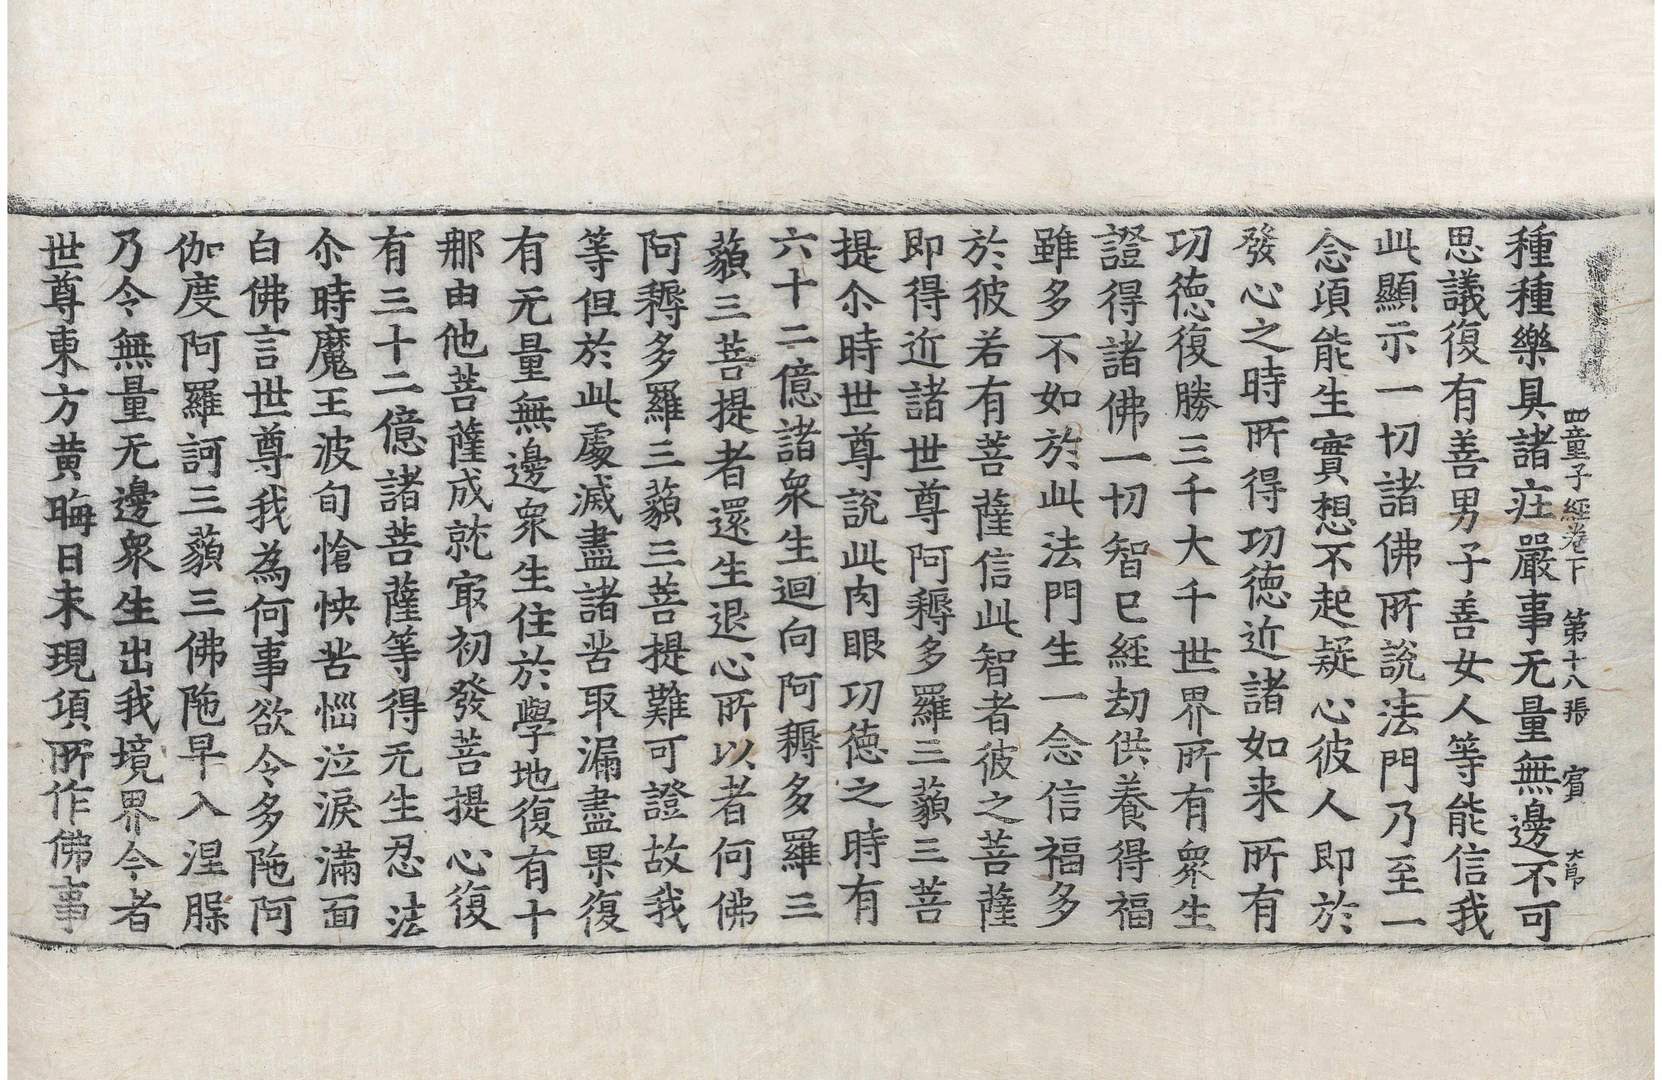 四童子經卷下 第十八張 賓
種種樂具諸庄嚴事无量無邊不可
思議復有善男子善女人等能信我
此顯示一切諸佛所說法門乃至一
念頃能生實想不起疑心彼人即於
發心之時所得功徳近諸如来所有
功徳復勝三千大千世界所有衆生
證得諸佛一切智已經劫供養得福
雖多不如於此法門生一念信福多
於彼若有菩薩信此智者彼之菩薩
即得近諸世尊阿耨多羅三藐三菩
提尒時世尊說此肉眼功徳之時有
六十二億諸衆生迴向阿耨多羅三
藐三菩提者還生退心所以者何佛
阿耨多羅三藐三菩提難可證故我
等但於此處滅盡諸苦取漏盡果復
有无量無邊衆生住於學地復有十
那由他菩薩成就㝡初發菩提心復
有三十二億諸菩薩等得无生忍法
尒時魔王波旬愴怏苦惱泣淚滿面
白佛言世尊我為何事欲令多陁阿
伽度阿羅訶三藐三佛陁早入涅槃
乃令無量无邊衆生出我境界今者
世尊東方黄晦日未現頃所作佛事